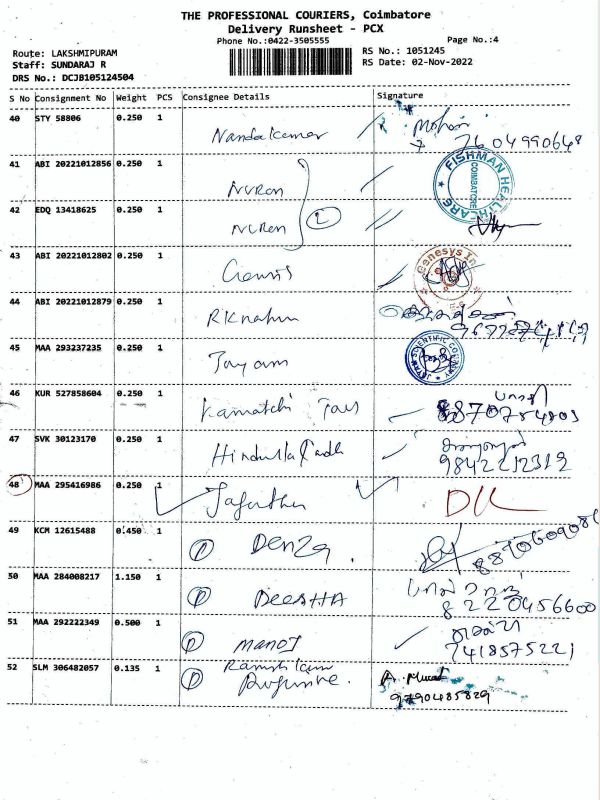 THE PROFESSIONAL COURIERS, Coimbatore
Delivery Runsheet - PCX
Phone No.:0422-3505555
Page No.:4
Route: LAKSHMIPURAM
RS No.: 1051245
Staff: SUNDARAJ R
RS Date: 02-Nov-2022
DRS No.: DCJB105124504
S No Consignment No Weight PCS Consignee Details Signature
40 STY 58806 0.250 1 Nandakumar Mohan
7604990648
41 ABI 20221012856 0.250 1 NURON
FISHMAN HEALTHCARE COIMBATORE
42 EDQ 13418625 0.250 1 NURON 2
43 ABI 20221012802 0.250 1 Genesys In
44 ABI 20221012879 0.250 1
45 MAA 293237235 0.250 1 Jayam JAYAM SCIENTIFIC COMPANY
46 KUR 527858604 0.250 1 Kamatchi
47 SVK 30123170 0.250 1
9842212312
48 MAA 295416986 0.250 1 DL
49 KCM 12615488 0.450 1 P DENZA
8870609086
50 MAA 284008217 1.150 1 P DEESHA
8220456600
51 MAA 292222349 0.500 1 P MANOJ
7418575221
52 SLM 306482057 0.135 1 P
9790485829